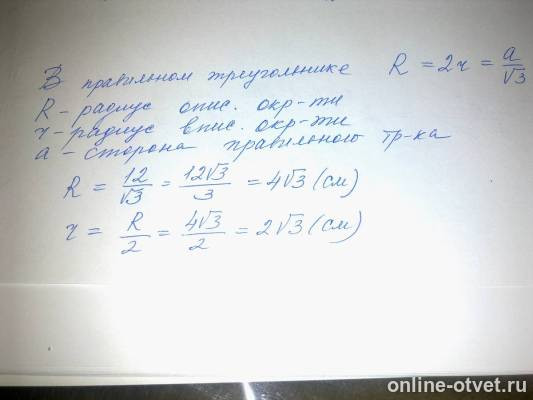 В правильном треугольнике R = 2r = a/√3
R – радиус опис. окр-ти
r – радиус впис. окр-ти
a – сторона правильного тр-ка
R = 12/√3 = 12√3/3 = 4√3 (см)
r = R/2 = 4√3/2 = 2√3 (см)
online-otvet.ru